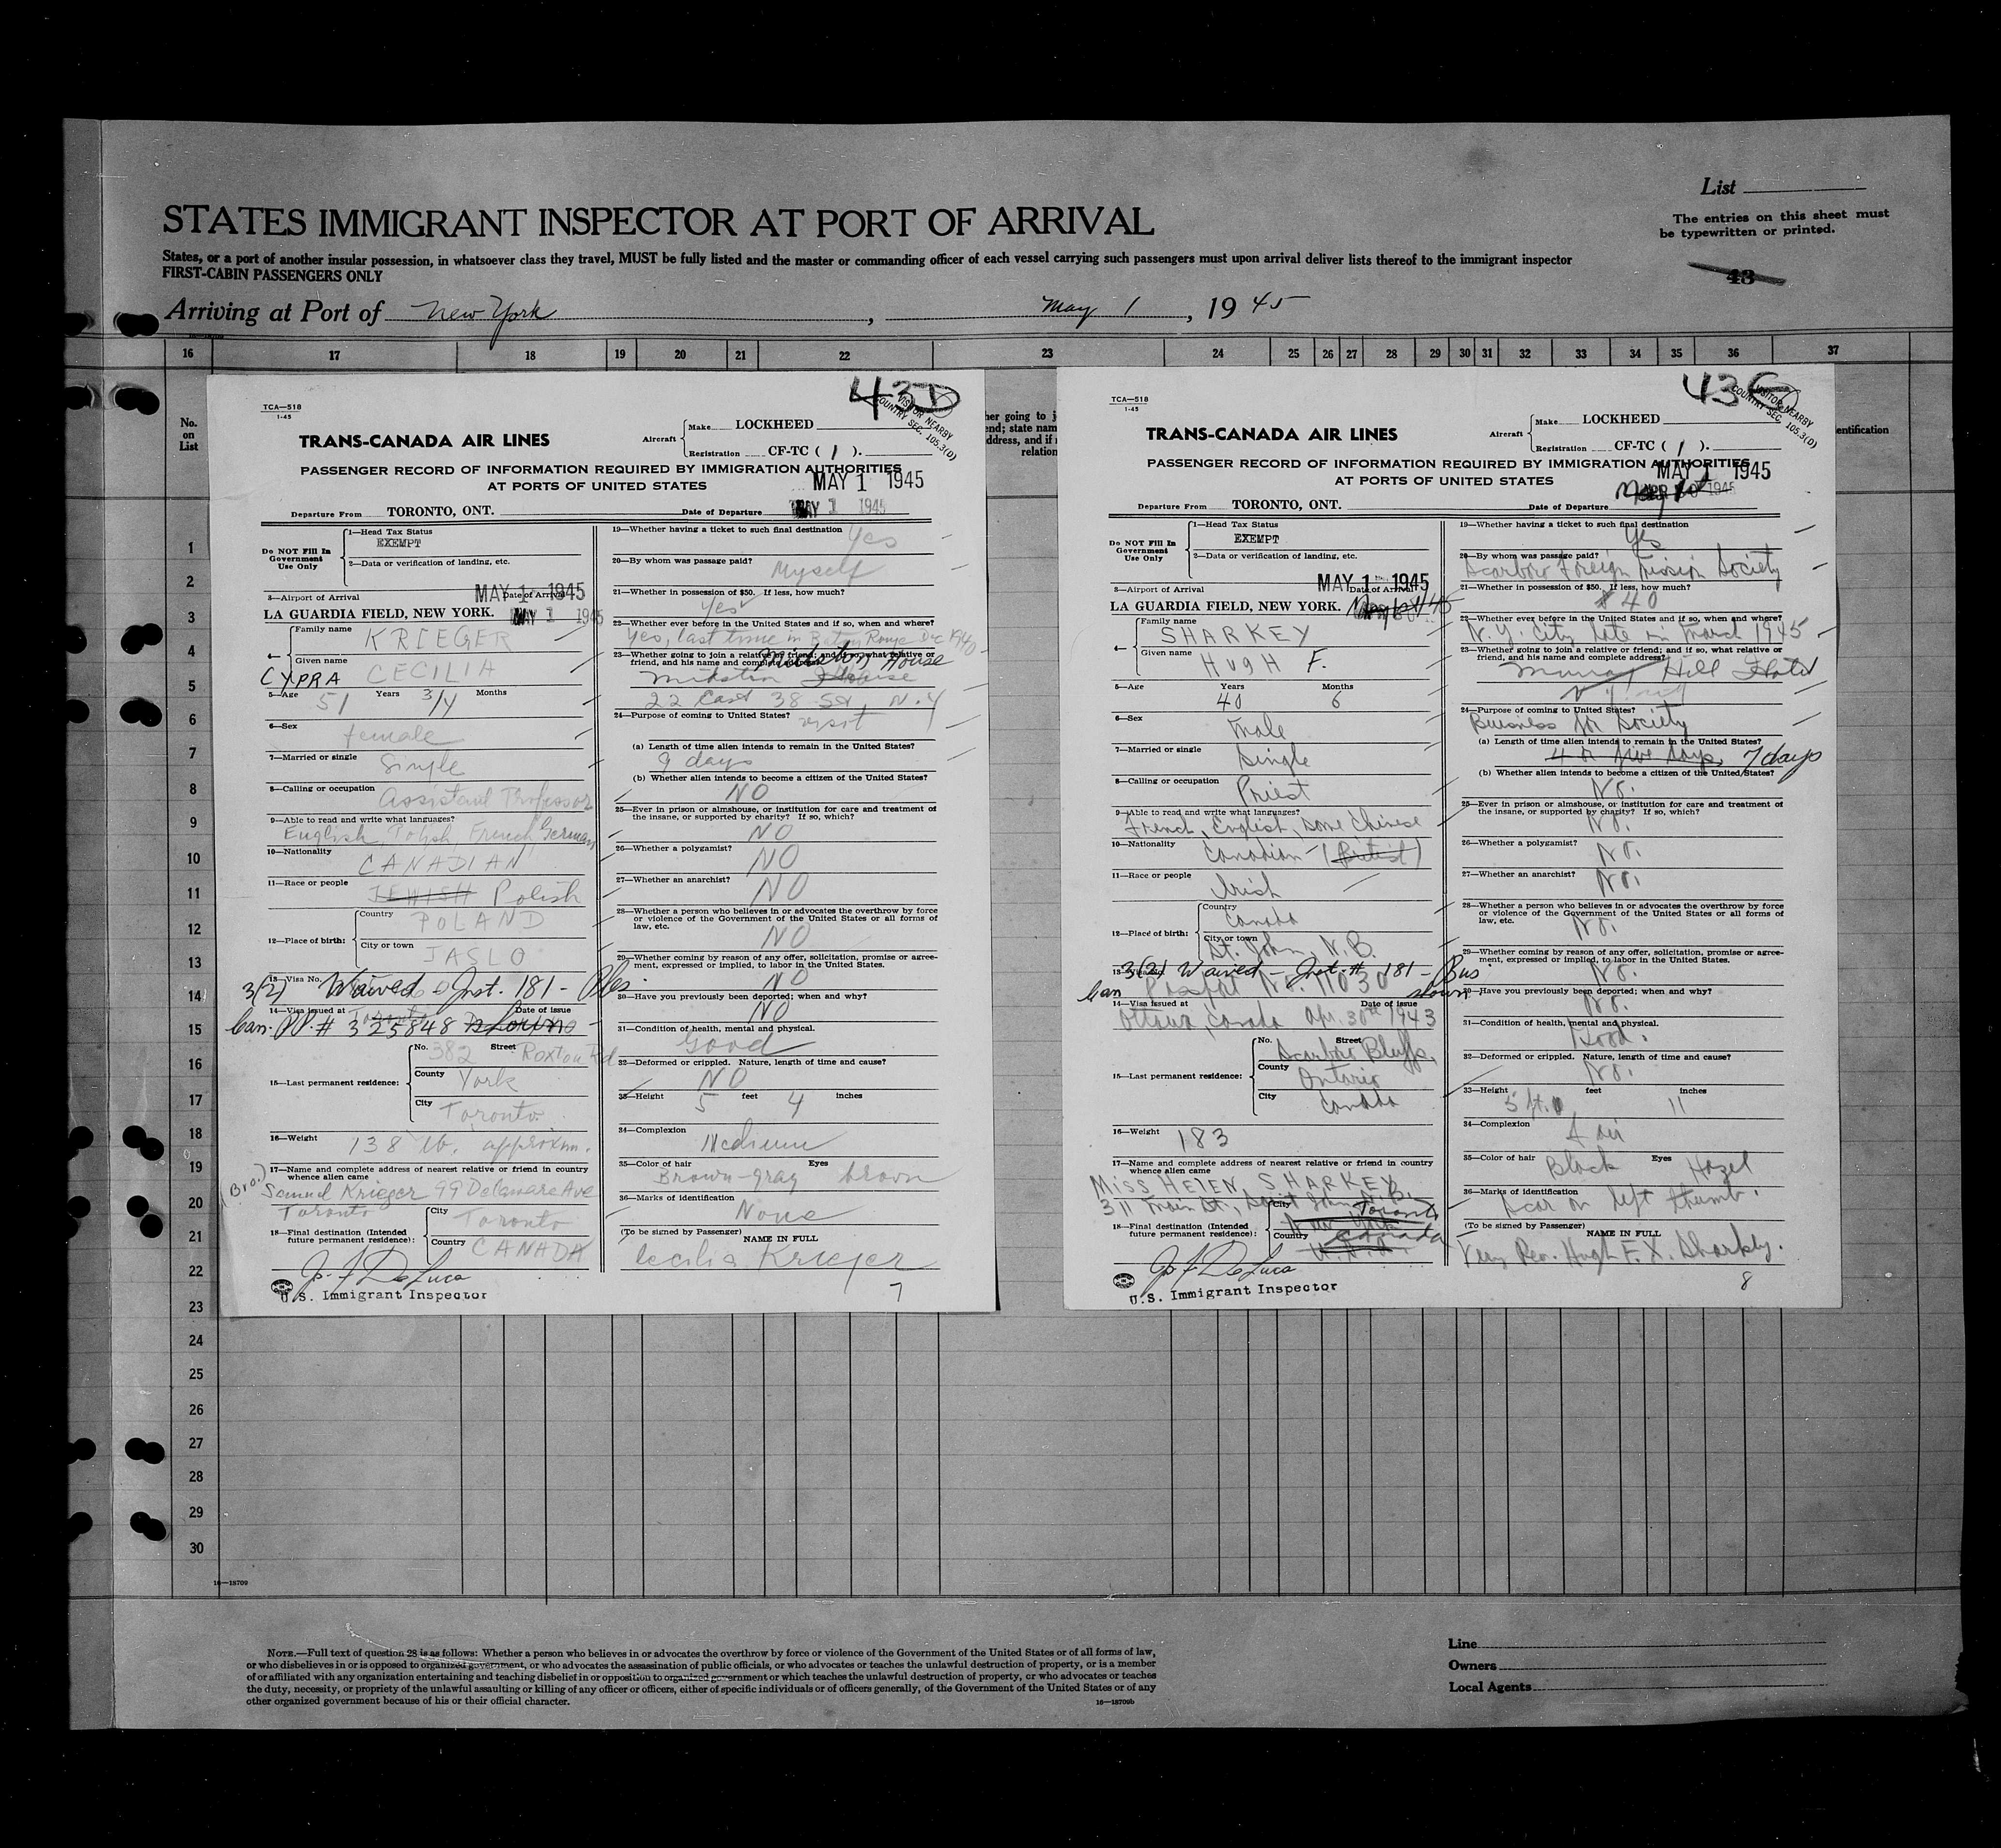 List
STATES IMMIGRANT INSPECTOR AT PORT OF ARRIVAL
The entries on this sheet must
be typewritten or printed.
States, or a port of another insular possession, in whatsoever class they travel, MUST be fully listed and the master or commanding officer of each vessel carrying such passengers must upon arrival deliver lists thereof to the immigrant inspector
FIRST-CABIN PASSENGERS ONLY
43
Arriving at Port of New York, May 1, 1945
16 17 18 19 20 21 22 23 24 25 26 27 28 29 30 31 32 33 34 35 36 37
No.
on
List
1
2
3
4
5
6
7
8
9
10
11
12
13
14
15
16
17
18
19
20
21
22
23
24
25
26
27
28
29
30
16—18709
43D
VISITOR NEARBY
COUNTRY SEC. 105.3(D)
TCA—518
1-45
Aircraft Make LOCKHEED
Registration CF-TC ( 1 ).
TRANS-CANADA AIR LINES
PASSENGER RECORD OF INFORMATION REQUIRED BY IMMIGRATION AUTHORITIES
AT PORTS OF UNITED STATES
MAY 1 1945
Departure From TORONTO, ONT. Date of Departure MAY 1 1945
Do NOT Fill In
Government
Use Only
1—Head Tax Status
EXEMPT
2—Data or verification of landing, etc.
MAY 1 1945
3—Airport of Arrival Date of Arrival
LA GUARDIA FIELD, NEW YORK. MAY 1 1945
4— Family name KRIEGER
Given name
CYPRA CECILIA
5—Age 51 Years 3/4 Months
6—Sex female
7—Married or single Single
8—Calling or occupation Assistant Professor
9—Able to read and write what languages?
English, Polish, French, German
10—Nationality CANADIAN
11—Race or people JEWISH Polish
12—Place of birth: Country POLAND
City or town JASLO
13—Visa No.
3(2) Waived - Inst. 181 - Ples.
14—Visa issued at Date of issue
Can. PP # 325848 Shown
15—Last permanent residence: No. 382 Street Roxton Rd
County York
City Toronto
16—Weight 138 lb. approxim.
17—Name and complete address of nearest relative or friend in country
whence alien came
(Bro.) Samuel Krieger 99 Delaware Ave
Toronto
18—Final destination (Intended
future permanent residence): City Toronto
Country CANADA
U.S. Immigrant Inspector
19—Whether having a ticket to such final destination Yes
20—By whom was passage paid? Myself
21—Whether in possession of $50. If less, how much?
Yes
22—Whether ever before in the United States and if so, when and where?
Yes, last time in Baton Rouge Dec 1940
23—Whether going to join a relative or friend; and if so, what relative or
friend, and his name and complete address?
Midston House
Midston House
22 East 38 St, N.Y
24—Purpose of coming to United States? visit
(a) Length of time alien intends to remain in the United States?
9 days
(b) Whether alien intends to become a citizen of the United States?
NO
25—Ever in prison or almshouse, or institution for care and treatment of
the insane, or supported by charity? If so, which?
NO
26—Whether a polygamist?
NO
27—Whether an anarchist?
NO
28—Whether a person who believes in or advocates the overthrow by force
or violence of the Government of the United States or all forms of
law, etc.
NO
29—Whether coming by reason of any offer, solicitation, promise or agree-
ment, expressed or implied, to labor in the United States.
NO
30—Have you previously been deported; when and why?
NO
31—Condition of health, mental and physical.
Good
32—Deformed or crippled. Nature, length of time and cause?
NO
33—Height 5 feet 4 inches
34—Complexion Medium
35—Color of hair Brown-gray Eyes brown
36—Marks of identification
None
(To be signed by Passenger) NAME IN FULL
Cecilia Krieger
7
43E
VISITOR NEARBY
COUNTRY SEC. 105.3(D)
TCA—518
1-45
Aircraft Make LOCKHEED
Registration CF-TC ( 1 ).
TRANS-CANADA AIR LINES
PASSENGER RECORD OF INFORMATION REQUIRED BY IMMIGRATION AUTHORITIES
AT PORTS OF UNITED STATES
MAY 1 1945
Departure From TORONTO, ONT. Date of Departure
Do NOT Fill In
Government
Use Only
1—Head Tax Status
EXEMPT
2—Data or verification of landing, etc.
MAY 1 1945
3—Airport of Arrival Date of Arrival
LA GUARDIA FIELD, NEW YORK.
4— Family name SHARKEY
Given name HUGH F.
5—Age 40 Years 6 Months
6—Sex Male
7—Married or single Single
8—Calling or occupation Priest
9—Able to read and write what languages?
French, English, some Chinese
10—Nationality Canadian (British)
11—Race or people Irish
12—Place of birth: Country Canada
City or town St. John, N.B.
3(2) Waived - Inst. # 181 - Bus
Can Passport No. 11030 shown
14—Visa issued at Date of issue
Ottawa, Canada Apr. 30th 1943
15—Last permanent residence: No. Street Scarboro Bluffs,
County Ontario
City Canada
16—Weight 183
17—Name and complete address of nearest relative or friend in country
whence alien came
MISS HELEN SHARKEY
311 Main St., Saint John N.B.
18—Final destination (Intended
future permanent residence): City New York Toronto
Country U.S.A. Canada
U.S. Immigrant Inspector
19—Whether having a ticket to such final destination
Yes
20—By whom was passage paid?
Scarboro Foreign Mission Society
21—Whether in possession of $50. If less, how much?
$40
22—Whether ever before in the United States and if so, when and where?
N.Y. City late in March 1945
23—Whether going to join a relative or friend; and if so, what relative or
friend, and his name and complete address?
Murray Hill Hotel
24—Purpose of coming to United States?
Business for Society
(a) Length of time alien intends to remain in the United States?
4 or five days 7 days
(b) Whether alien intends to become a citizen of the United States?
No.
25—Ever in prison or almshouse, or institution for care and treatment of
the insane, or supported by charity? If so, which?
No.
26—Whether a polygamist?
No.
27—Whether an anarchist?
No.
28—Whether a person who believes in or advocates the overthrow by force
or violence of the Government of the United States or all forms of
law, etc.
No.
29—Whether coming by reason of any offer, solicitation, promise or agree-
ment, expressed or implied, to labor in the United States.
No.
30—Have you previously been deported; when and why?
No.
31—Condition of health, mental and physical.
Good.
32—Deformed or crippled. Nature, length of time and cause?
No.
33—Height 5 ft. feet 11 inches
34—Complexion Fair
35—Color of hair Black Eyes Hazel
36—Marks of identification
Scar on left thumb.
(To be signed by Passenger) NAME IN FULL
Very Rev. Hugh F. X. Sharkey.
8
NOTE.—Full text of question 28 is as follows: Whether a person who believes in or advocates the overthrow by force or violence of the Government of the United States or of all forms of law,
or who disbelieves in or is opposed to organized government, or who advocates the assassination of public officials, or who advocates or teaches the unlawful destruction of property, or is a member
of or affiliated with any organization entertaining and teaching disbelief in or opposition to organized government or which teaches the unlawful destruction of property, or who advocates or teaches
the duty, necessity, or propriety of the unlawful assaulting or killing of any officer or officers, either of specific individuals or of officers generally, of the Government of the United States or of any
other organized government because of his or their official character.
16—18709b
Line
Owners
Local Agents